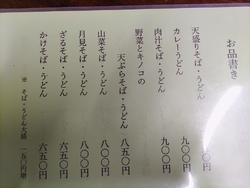 お品書き
天盛りそば・うどん 〇〇円
カレーうどん 九〇〇円
肉汁そば・うどん 九〇〇円
野菜とキノコの
天ぷらそば・うどん 八五〇円
山菜そば・うどん 八〇〇円
月見そば・うどん 八〇〇円
ざるそば・うどん 六五〇円
かけそば・うどん 六五〇円
※ そば・うどん大盛 一五〇円増